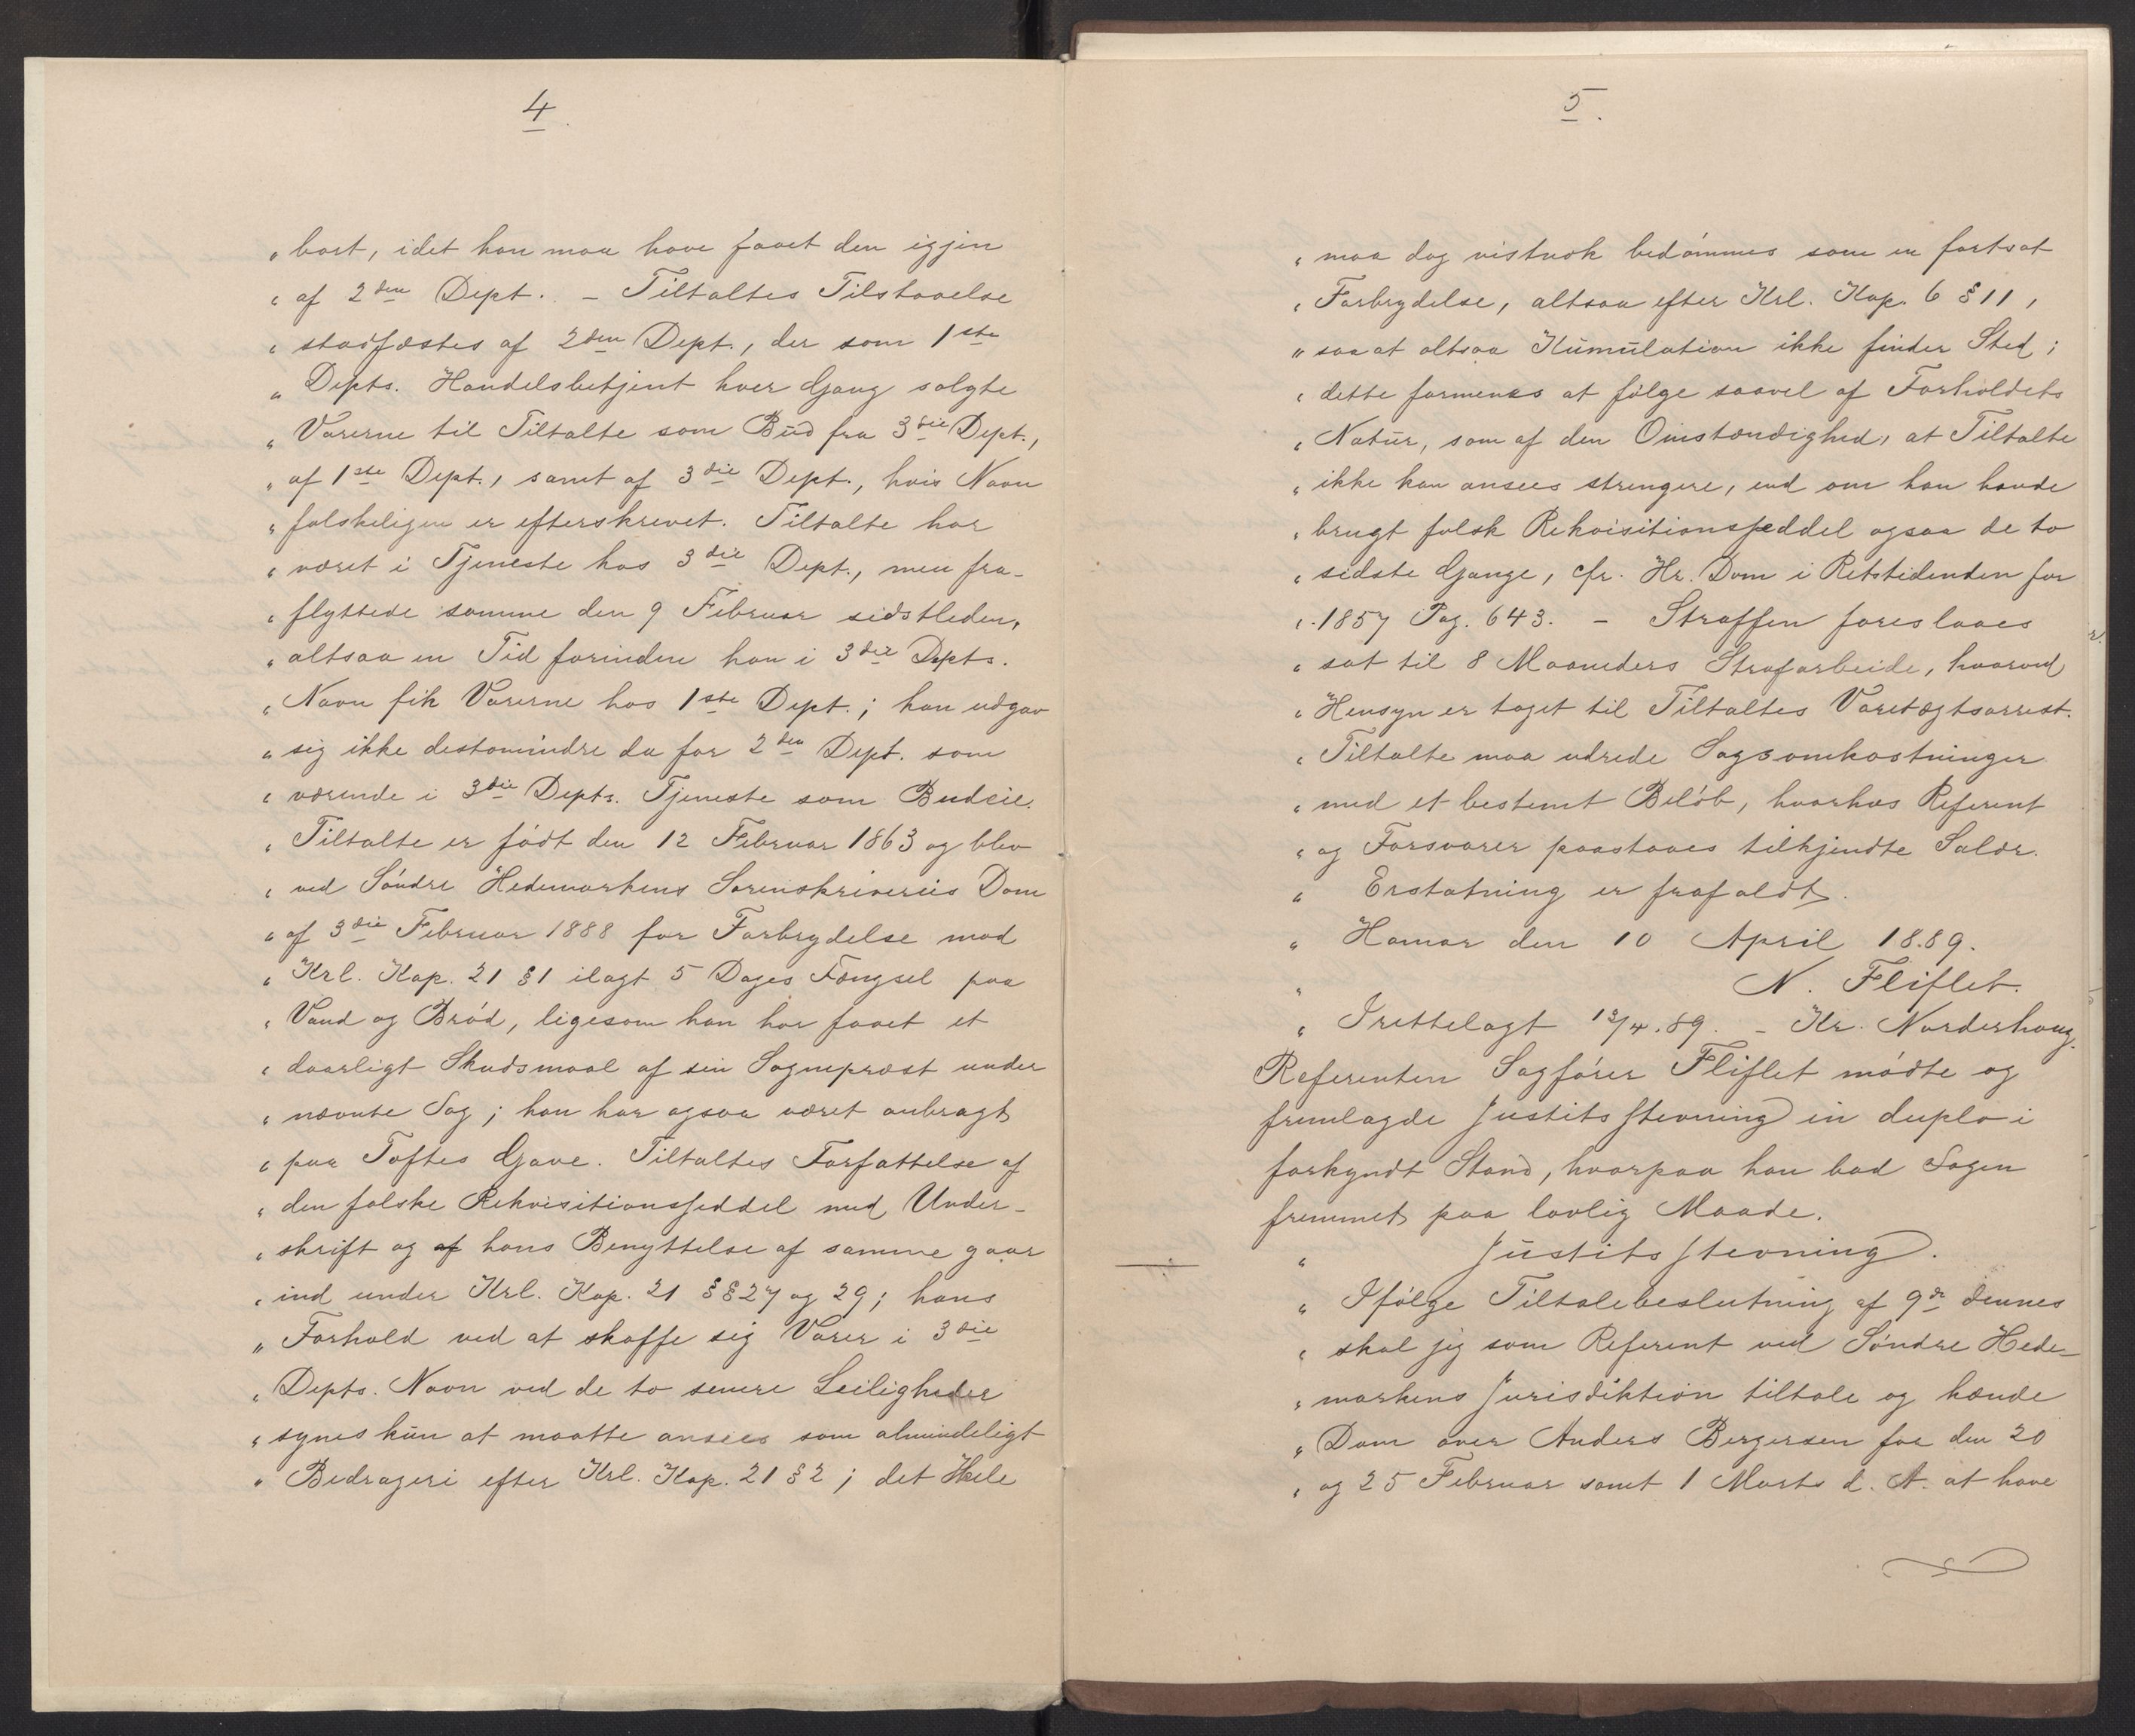 4
„ bort, idet han maa have faaet den igjen
„ af 2den Dept. – Tiltaltes Tilstaaelse
„ stadfæstes af 2den Dept., der som 1ste
„ Depts. Handelsbetjent hver Gang solgte
„ Varerne til Tiltalte som Bud fra 3die Dept.,
„ af 1ste Dept., samt af 3die Dept., hvis Navn
„ falskeligen er efterskrevet. Tiltalte har
„ været i Tjeneste hos 3die Dept., men fra-
„ flyttede samme den 9 Februar sidstleden,
„ altsaa en Tid forinden han i 3die Depts.
„ Navn fik Varerne hos 1ste Dept.; han udgav
„ sig ikke destomindre da for 2den Dept. som
„ værende i 3die Depts. Tjeneste som Budeie.
„ Tiltalte er født den 12 Februar 1863 og blev
„ ved Søndre Hedemarkens Sorenskriveriis Dom
„ af 3die Februar 1888 for Forbrydelse mod
„ Krl. Kap. 21 § 1 ilagt 5 Dages Fængsel paa
„ Vand og Brød, ligesom han har faaet et
„ daarligt Skudsmaal af sin Sogneprest under
„ nævnte Sag; han har ogsaa været anbragt
„ paa Toftes Gave. Tiltaltes Forfattelse af
„ den falske Rekvisitionsseddel med Under-
„ skrift og af hans Benyttelse af samme gaar
„ ind under Krl. Kap. 21 §§ 27 og 29; hans
„ Forhold ved at skaffe sig Varer i 3die
„ Depts. Navn ved de to senere Leiligheder
„ synes kun at maatte ansees som almindeligt
„ Bedrageri efter Krl. Kap. 21 § 2; det Hele
5.
„ maa dog vistnok bedømmes som en fortsat
„ Forbrydelse, altsaa efter Krl. Kap. 6 § 11,
„ saa at altsaa Kumulation ikke finder Sted;
„ dette formenes at følge saavel af Forholdets
„ Natur, som af den Omstændighed, at Tiltalte
„ ikke kan ansees strengere, end om han havde
„ brugt falsk Rekvisitionsseddel ogsaa de to
„ sidste Gange, cfr. Hr. Dom i Retstidenden for
„ 1857 Pag. 643. – Straffen foreslaaes
„ sat til 8 Maaneders Strafarbeide, hvorved
„ Hensyn er taget til Tiltaltes Varetægtsarrest.
„ Tiltalte maa udrede Sagsomkostninger
„ med et bestemt Beløb, hvorhos Referent
„ og Forsvarer paastaaes tilkjendte Salær.
„ Erstatning er frafaldt.
„ Hamar den 10 April 1889.
„ N. Fliflet.
„ Irettelagt 12/4.89. – Kr. Norderhaug.
Referenten Sagfører Fliflet mødte og
fremlagde Justitsstevning in duplo i
forkyndt Stand, hvorpaa han bad Sagen
fremmet paa lovlig Maade.
„ Justitsstevning.
„ Ifølge Tiltalebeslutning af 9de dennes
„ skal jeg som Referent ved Søndre Hede-
„ markens Jurisdiktion tiltale og hænde
„ Dom over Anders Bergersen for den 20
„ og 25 Februar samt 1 Marts d. A. at have